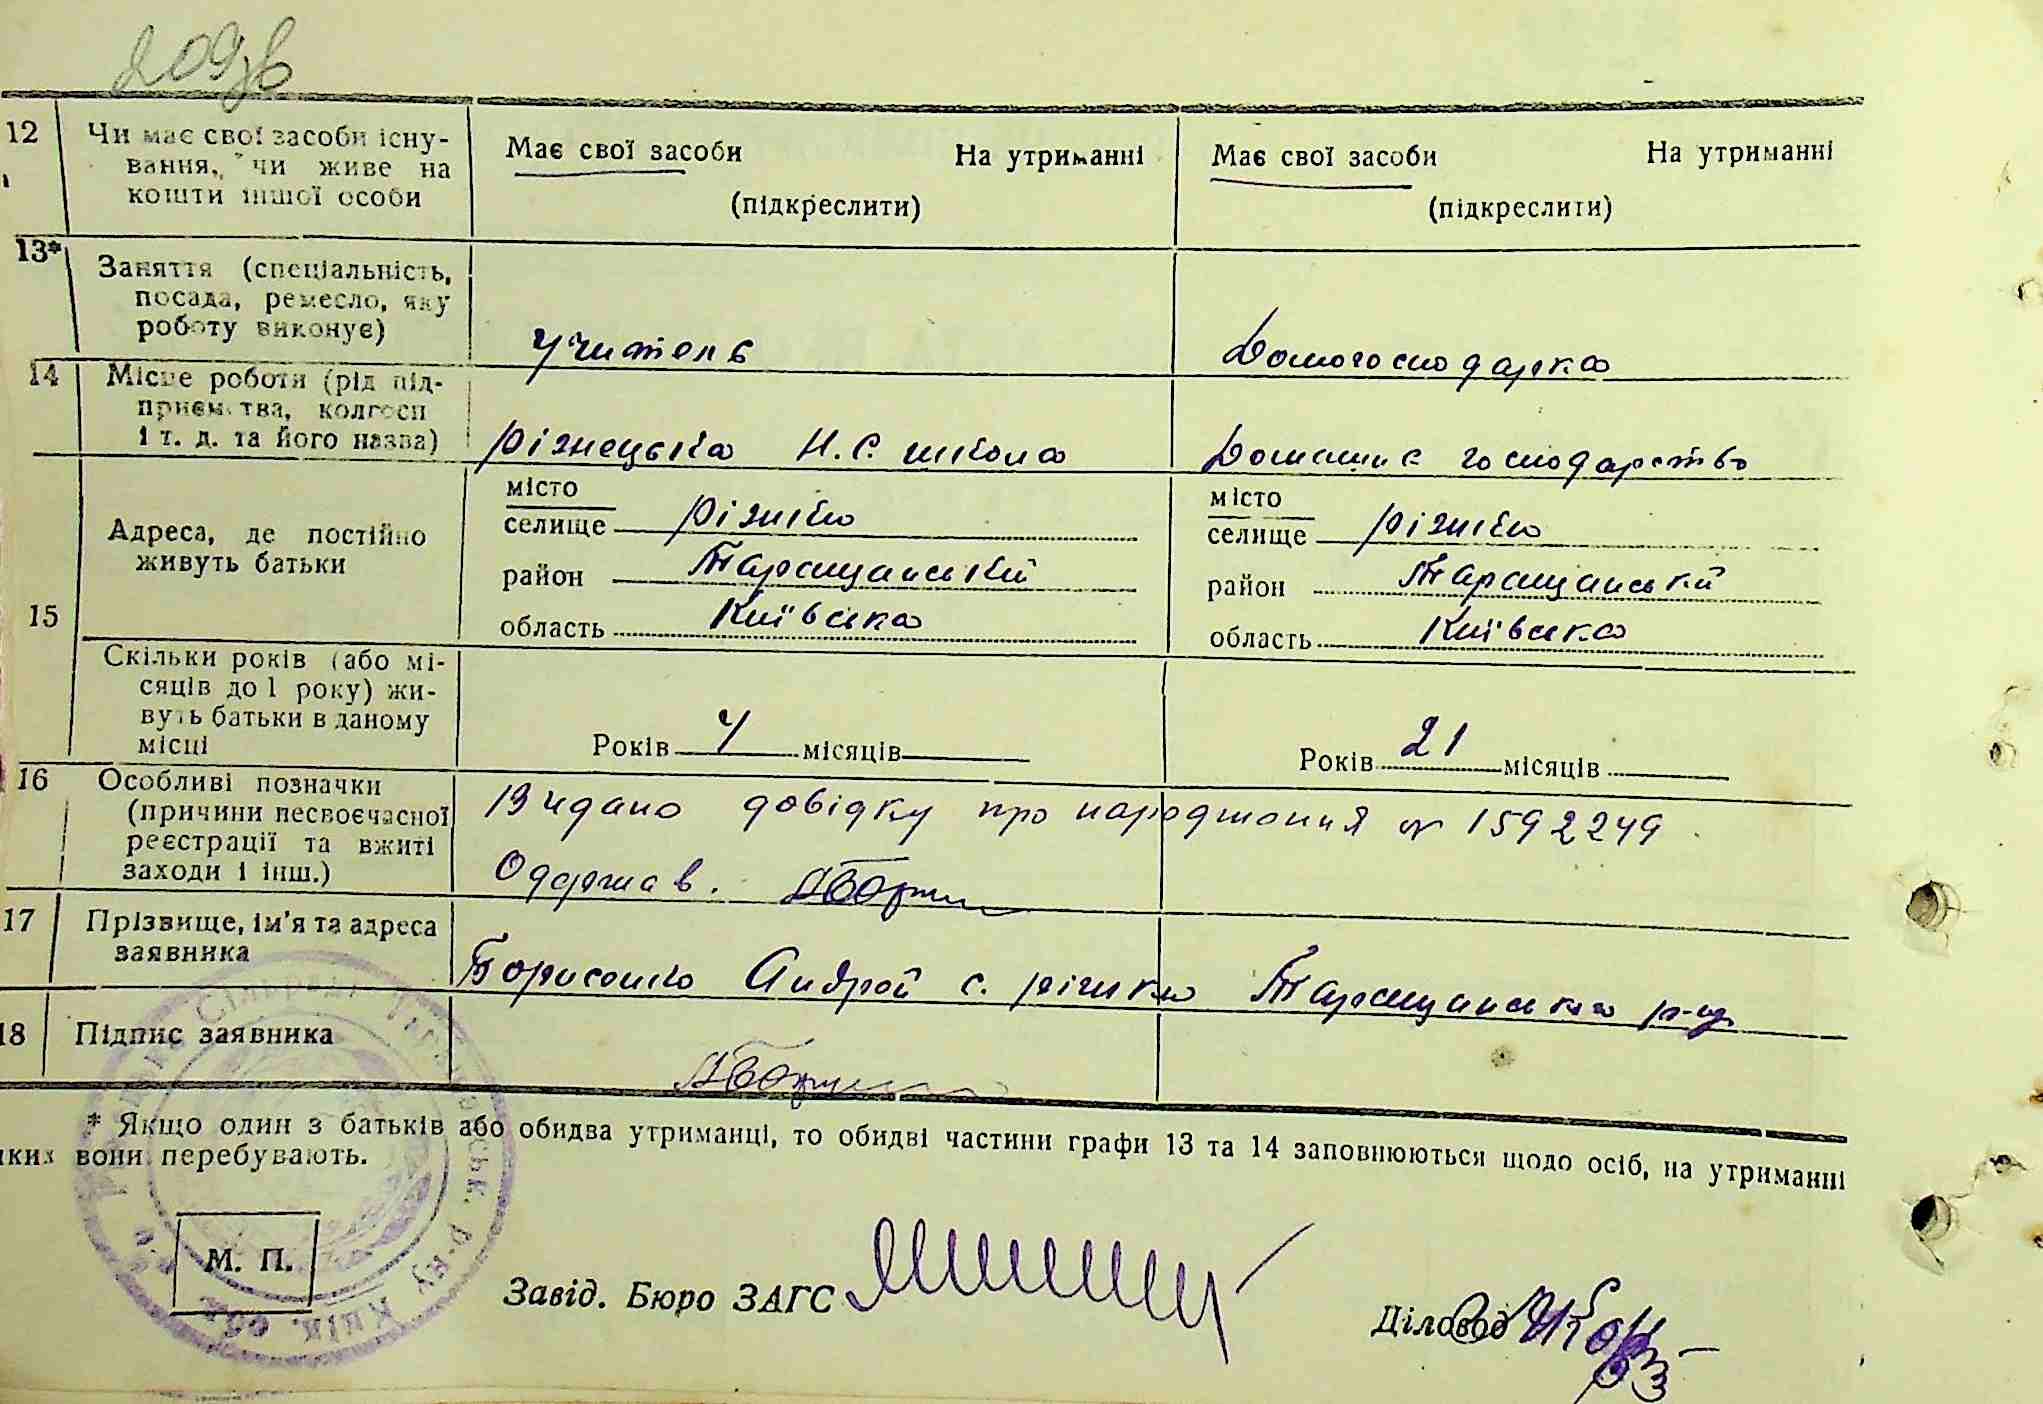 209зв
12 Чи має свої засоби існу-
вання, чи живе на
кошти іншої особи
Має свої засоби На утриманні
(підкреслити)
Має свої засоби На утриманні
(підкреслити)
13* Заняття (спеціальність,
посада, ремесло, яку
роботу виконує)
учитель
Домогосподарка
14 Місце роботи (рід під-
приємства, колгосп
і т. д. та його назва)
Різнецька Н.С. школа
Домашнє господарство
15 Адреса, де постійно
живуть батьки
місто
селище
район Таращанський
область Київська
місто
селище
район Таращанський
область Київська
Скільки років (або мі-
сяців до 1 року) жи-
вуть батьки в даному
місці
Років місяців
Років 21 місяців
16 Особливі позначки
(причини несвоєчасної
реєстрації та вжиті
заходи і інш.)
Видано довідку про народження № 1592249
Одержав.
17 Прізвище, ім'я та адреса
заявника
Андрой с. Таращанського р-ну
18 Підпис заявника
* Якщо один з батьків або обидва утриманці, то обидві частини графи 13 та 14 заповнюються щодо осіб, на утриманні
яких вони перебувають.
М. П.
Завід. Бюро ЗАГС
Діловод